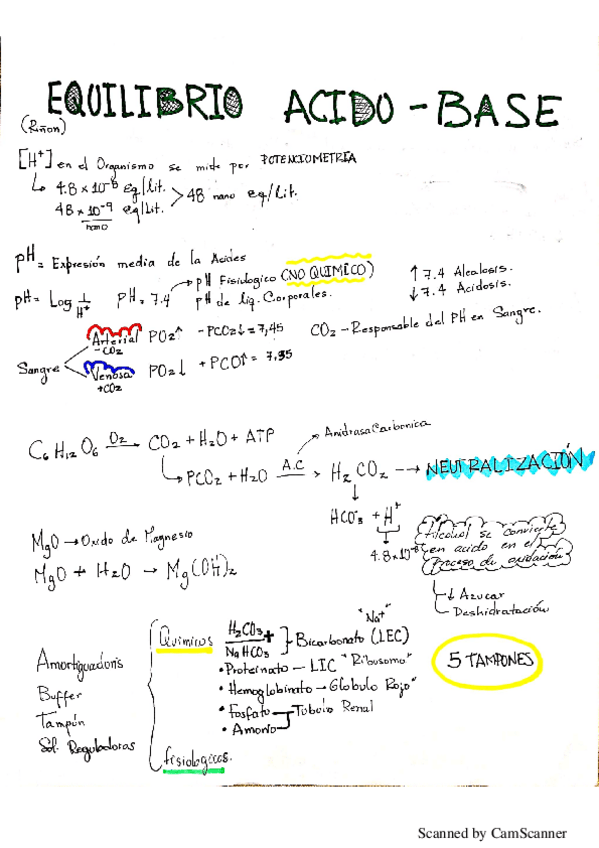 EQUILIBRIO ACIDO-BASE
(Riñon)
[H⁺] en el Organismo se mide por POTENCIOMETRIA
4.8 x 10⁻⁸ Eq/Lit.
48 x 10⁻⁹ eq/Lit. > 48 nano eq/Lit.
nano
pH = Expresión media de la Acides
pH = Log 1/H⁺ pH = 7.4 → pH Fisiologico (NO QUIMICO) ↑ 7.4 Alcalosis.
pH de liq. Corporales. ↓ 7.4 Acidosis.
Sangre
Arterial PO2↑ -PCO2↓ = 7,45 CO2 - Responsable del PH en Sangre.
-CO2
Venosa PO2↓ + PCO↑ = 7,35
+CO2
C6H12O6 O2→ CO2 + H2O + ATP → Anidrasa Carbonica
PCO2 + H2O A.C → H2CO2 → NEUTRALIZACIÓN
HCO3 + H⁺
4.8x10⁻⁸
Alcohol se convierte
en acido en el
Proceso de oxidación
↓ Azucar
Deshidratación
MgO → Oxido de Magnesio
MgO + H2O → Mg(OH)2
Amortiguadores
Buffer
Tampón
Sol. Reguladoras
Quimicos H2CO3 + / NaHCO3 } Bicarbonato (LEC) "Na⁺"
• Proteinato - LIC "Ribosomo"
• Hemoglobinato → Globulo Rojo"
• Fosfato
• Amonio → Tubulo Renal
fisiologicos.
5 TAMPONES
Scanned by CamScanner